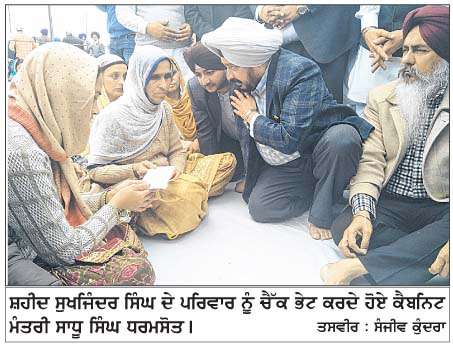 ਸ਼ਹੀਦ ਸੁਖਜਿੰਦਰ ਸਿੰਘ ਦੇ ਪਰਿਵਾਰ ਨੂੰ ਚੈੱਕ ਭੇਟ ਕਰਦੇ ਹੋਏ ਕੈਬਨਿਟ
ਮੰਤਰੀ ਸਾਧੂ ਸਿੰਘ ਧਰਮਸੋਤ। ਤਸਵੀਰ : ਸੰਜੀਵ ਕੁੰਦਰਾ